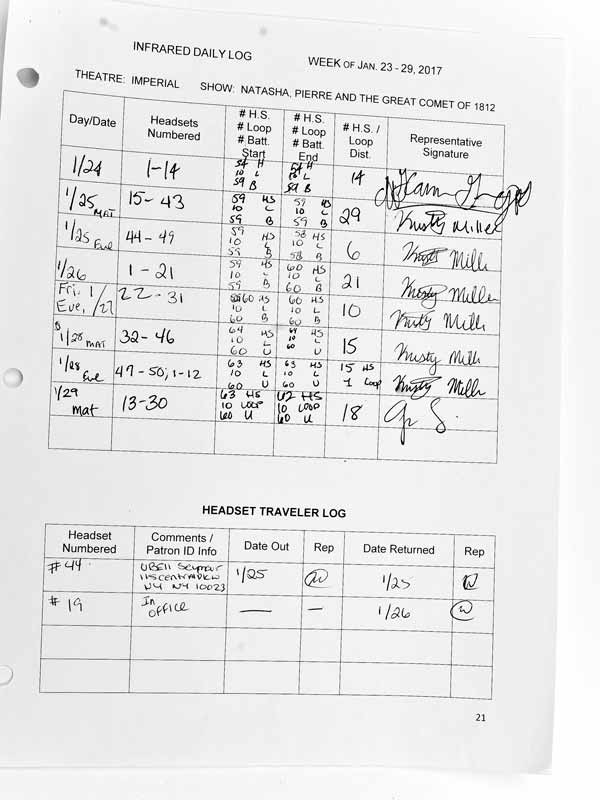 INFRARED DAILY LOG
WEEK OF JAN. 23 - 29, 2017
THEATRE: IMPERIAL SHOW: NATASHA, PIERRE AND THE GREAT COMET OF 1812
Day/Date
Headsets
Numbered
# H.S.
# Loop
# Batt.
Start
# H.S.
# Loop
# Batt.
End
# H.S. /
Loop
Dist.
Representative
Signature
1/24
1-14
54 H
10 L
59 B
54 H
10 L
59 B
14
1/25 MAT
15-43
59 HS
10 L
59 B
59 HS
10 L
59 B
29
Kristy Miller
1/25 Eve
44-49
59 HS
10 L
59 B
58 HS
10 L
59 B
6
Kristy Mille
1/26
1-21
59 HS
10 L
59 B
60 HS
10 L
60 B
21
Kristy Miller
Fri. 1/
Eve, 1/27
22-31
60 HS
10 L
60 B
60 HS
10 L
60 B
10
Kristy Mille
1/28 MAT
32-46
64 HS
10 L
60 U
64 HS
10 L
60 U
15
Kristy Mille
1/28 Eve
47-50; 1-12
63 HS
10 L
60 U
63 HS
10 L
60 U
15 HS
1 Loop
Kristy Mille
1/29
mat
13-30
63 HS
10 LOOP
60 U
62 HS
10 LOOP
60 U
18
HEADSET TRAVELER LOG
Headset
Numbered
Comments /
Patron ID Info
Date Out
Rep
Date Returned
Rep
#44
Seymour
NY NY 10023
1/25
1/25
# 19
In
OFFICE
—
—
1/26
21